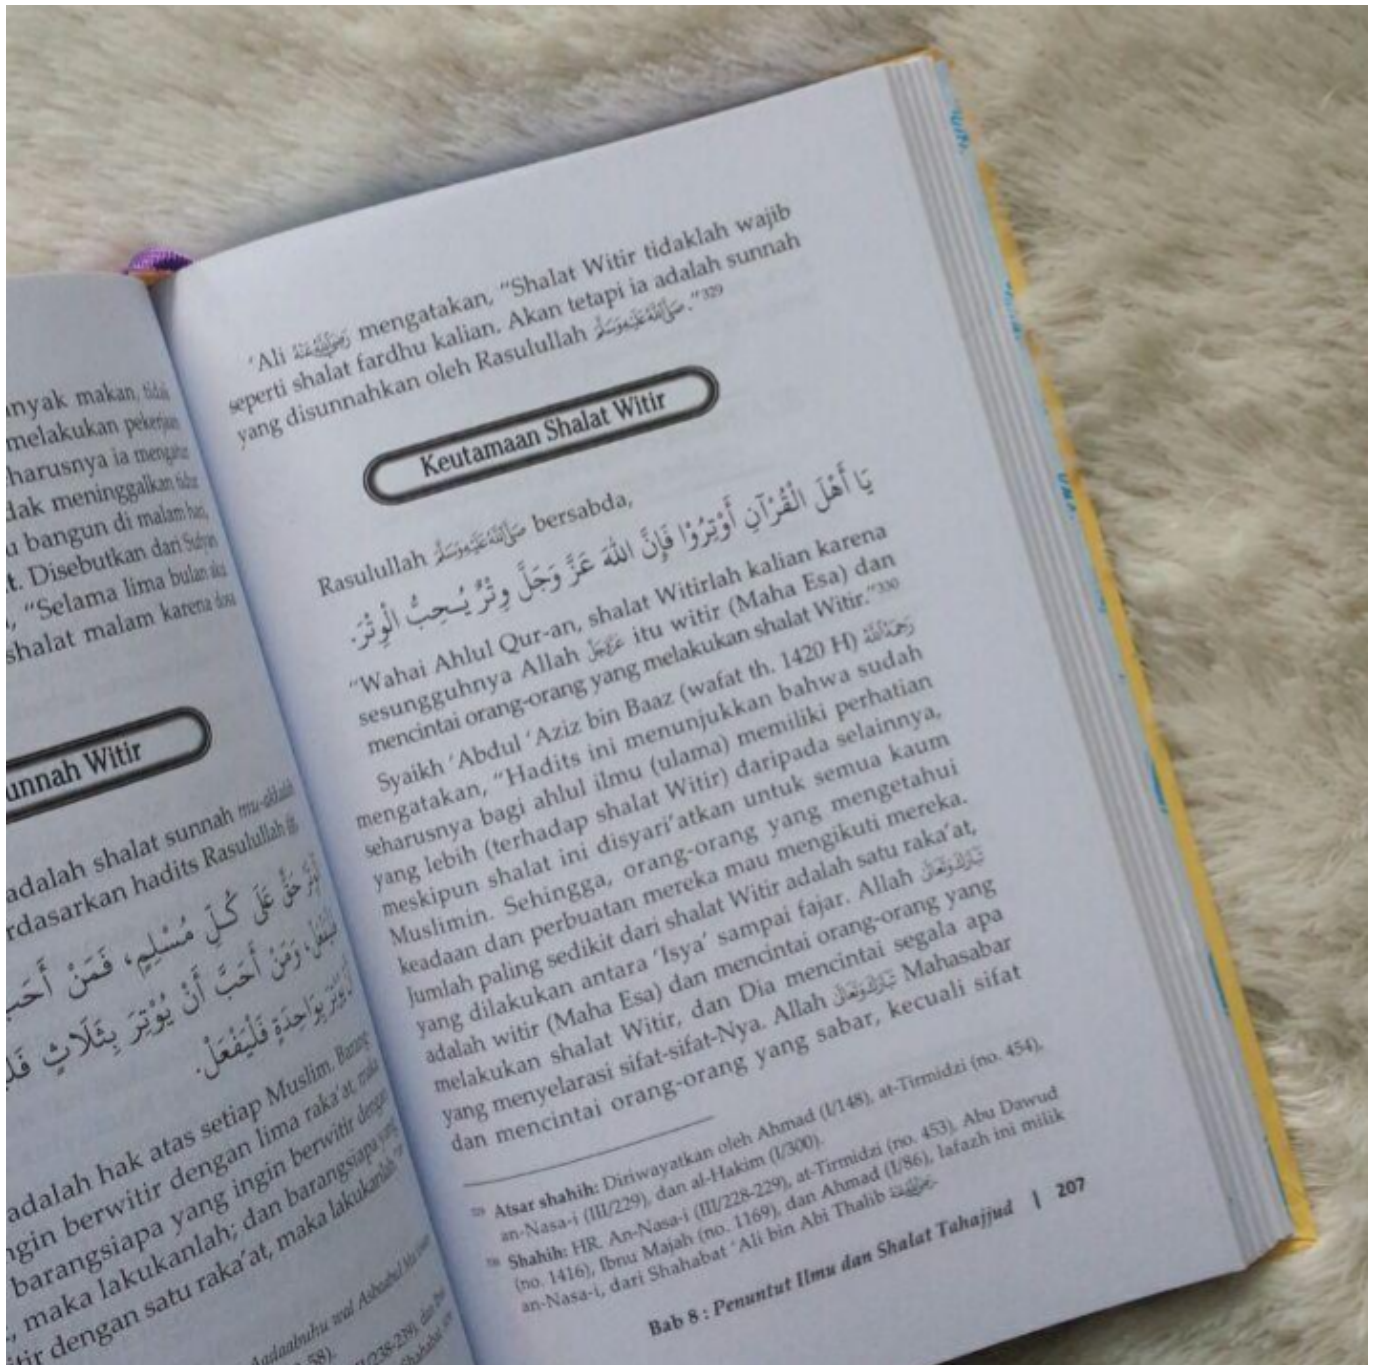 anyak makan, tidak
melakukan pekerjaan
harusnya ia mengatur
dak meninggalkan tidur
u bangun di malam hari,
t. Disebutkan dari Sufyan
"Selama lima bulan aku
shalat malam karena dosa
unnah Witir
adalah shalat sunnah mu-akkadah
rdasarkan hadits Rasulullah ﷺ,
حَقٌّ عَلَى كُلِّ مُسْلِمٍ، فَمَنْ أَحَبَّ
وَمَنْ أَحَبَّ أَنْ يُوْتِرَ بِثَلَاثٍ
بِوَاحِدَةٍ فَلْيَفْعَلْ.
adalah hak atas setiap Muslim. Barang
ngin berwitir dengan lima raka'at, maka
barangsiapa yang ingin berwitir dengan
, maka lakukanlah; dan barangsiapa yang
itir dengan satu raka'at, maka lakukanlah."
Aadaabuhu wal Asbaabul
58).
'Ali رضي الله عنه mengatakan, "Shalat Witir tidaklah wajib
seperti shalat fardhu kalian. Akan tetapi ia adalah sunnah
yang disunnahkan oleh Rasulullah ﷺ."329
Keutamaan Shalat Witir
Rasulullah ﷺ bersabda,
يَا أَهْلَ الْقُرْآنِ أَوْتِرُوْا فَإِنَّ اللهَ عَزَّ وَجَلَّ وِتْرٌ يُحِبُّ الْوِتْرَ.
"Wahai Ahlul Qur-an, shalat Witirlah kalian karena
sesungguhnya Allah عز وجل itu witir (Maha Esa) dan
mencintai orang-orang yang melakukan shalat Witir."330
Syaikh 'Abdul 'Aziz bin Baaz (wafat th. 1420 H) رحمه الله
mengatakan, "Hadits ini menunjukkan bahwa sudah
seharusnya bagi ahlul ilmu (ulama) memiliki perhatian
yang lebih (terhadap shalat Witir) daripada selainnya,
meskipun shalat ini disyari'atkan untuk semua kaum
Muslimin. Sehingga, orang-orang yang mengetahui
keadaan dan perbuatan mereka mau mengikuti mereka.
Jumlah paling sedikit dari shalat Witir adalah satu raka'at,
yang dilakukan antara 'Isya' sampai fajar. Allah تبارك وتعالى
adalah witir (Maha Esa) dan mencintai orang-orang yang
melakukan shalat Witir, dan Dia mencintai segala apa
yang menyelarasi sifat-sifat-Nya. Allah تبارك وتعالى Mahasabar
dan mencintai orang-orang yang sabar, kecuali sifat
329 Atsar shahih: Diriwayatkan oleh Ahmad (I/148), at-Tirmidzi (no. 454),
an-Nasa-i (III/229), dan al-Hakim (I/300).
330 Shahih: HR. An-Nasa-i (III/228-229), at-Tirmidzi (no. 453), Abu Dawud
(no. 1416), Ibnu Majah (no. 1169), dan Ahmad (I/86), lafazh ini milik
an-Nasa-i, dari Shahabat 'Ali bin Abi Thalib رضي الله عنه.
Bab 8 : Penuntut Ilmu dan Shalat Tahajjud | 207